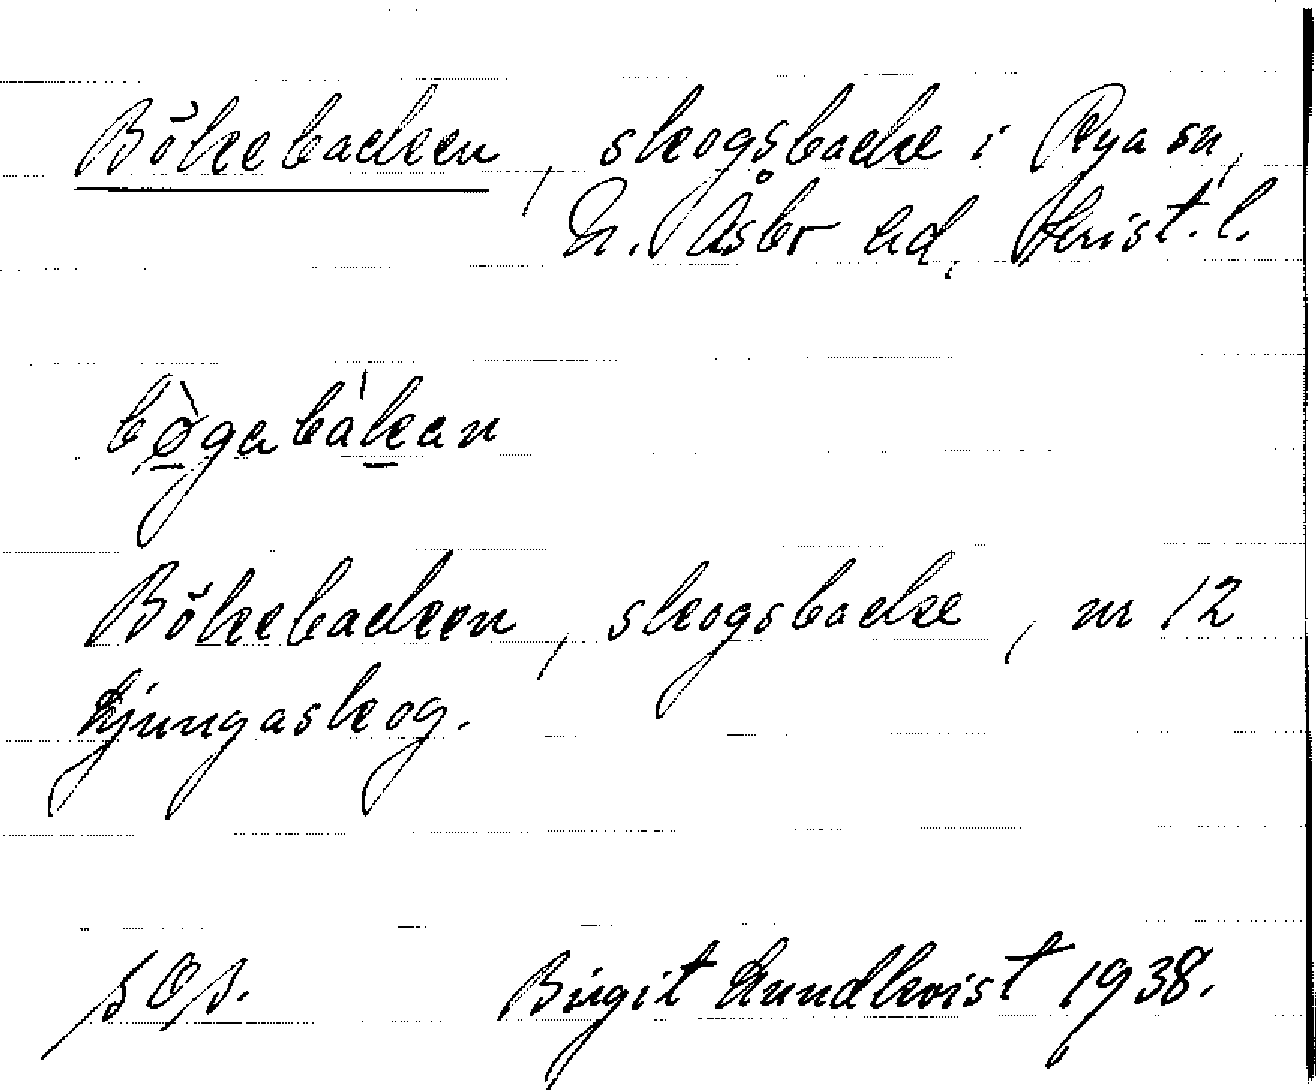 Bökebacken, skogsbacke i Rya sn,
N. Åsbo hd, Krist. l.
bø̀gabákan
Bökebacken, skogsbacke, nr 12
Ljungaskog.
Birgit Lundkvist 1938.